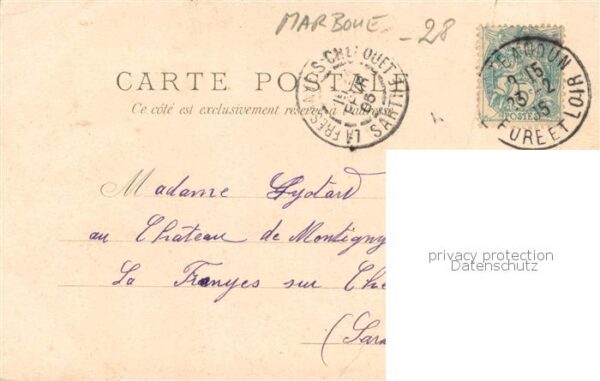 MARBOUE - 28
CARTE POSTALE
Ce côté est exclusivement réservé à l'adresse
LA FRESNAYE-S-CHEDOUET SARTHE
05
CHATEAUDUN
2 15
23 -2
05
EURE ET LOIR
POSTES
Madame Lyotard
au Château de Montigny
La Fresnyes sur Che
(Sar
privacy protection
Datenschutz